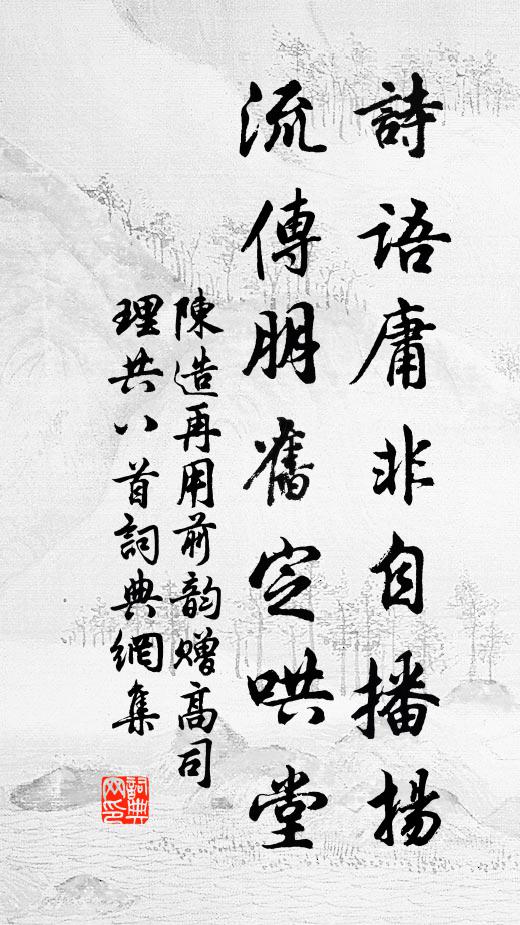 詩語庸非自播揚
流傳朋舊定哄堂
陳造再用前韵贈高司
理共八首詞典網集
詞典網印